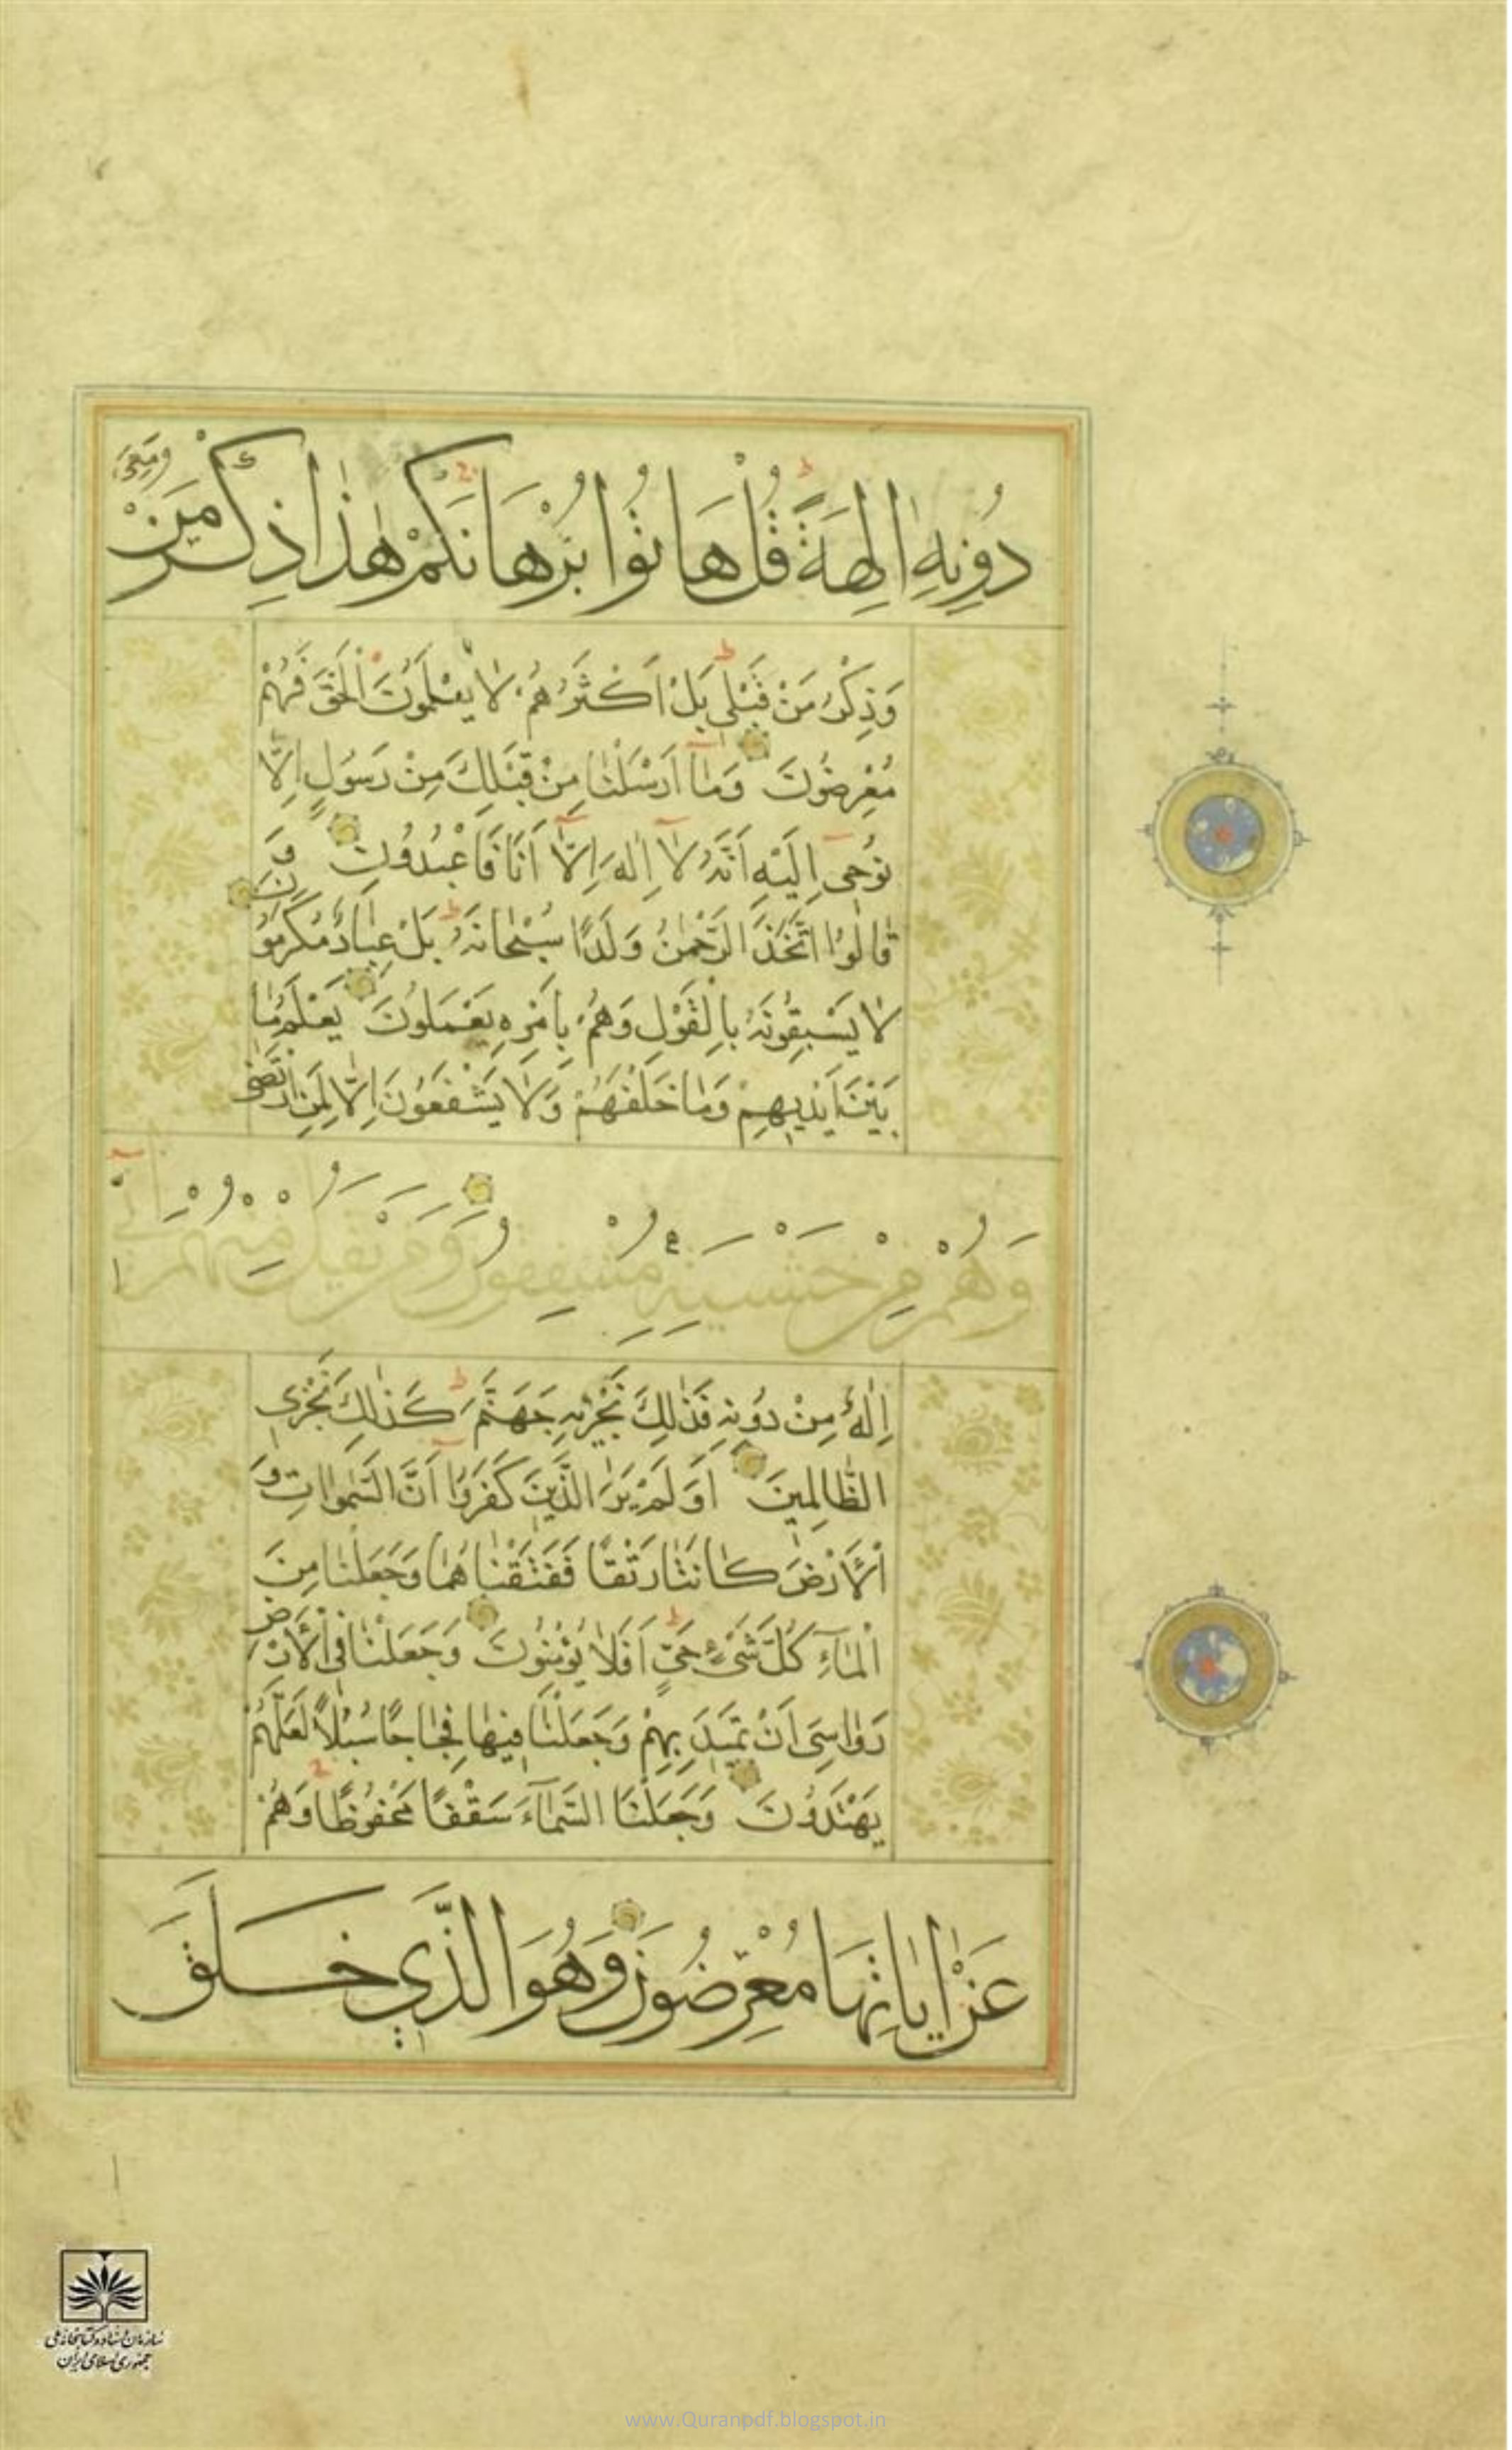 دُونِهِ اٰلِهَةً قُلْ هَاتُوا بُرْهَانَكُمْ هٰذَا ذِكْرُ مَنْ مَعِيَ
وَذِكْرُ مَنْ قَبْلِي بَلْ اَكْثَرُهُمْ لَا يَعْلَمُونَ الْحَقَّ فَهُمْ
مُعْرِضُونَ وَمَا اَرْسَلْنَا مِنْ قَبْلِكَ مِنْ رَسُولٍ اِلَّا
نُوحِي اِلَيْهِ اَنَّهُ لَا اِلٰهَ اِلَّا اَنَا فَاعْبُدُونِ وَ
قَالُوا اتَّخَذَ الرَّحْمٰنُ وَلَدًا سُبْحَانَهُ بَلْ عِبَادٌ مُكْرَمُونَ
لَا يَسْبِقُونَهُ بِالْقَوْلِ وَهُمْ بِاَمْرِهِ يَعْمَلُونَ يَعْلَمُ مَا
بَيْنَ اَيْدِيهِمْ وَمَا خَلْفَهُمْ وَلَا يَشْفَعُونَ اِلَّا لِمَنِ ارْتَضٰى
وَهُمْ مِنْ خَشْيَتِهِ مُشْفِقُونَ وَمَنْ يَقُلْ مِنْهُمْ اِنِّي
اِلٰهٌ مِنْ دُونِهِ فَذٰلِكَ نَجْزِيهِ جَهَنَّمَ كَذٰلِكَ نَجْزِي
الظَّالِمِينَ اَوَلَمْ يَرَ الَّذِينَ كَفَرُوا اَنَّ السَّمٰوَاتِ وَ
الْاَرْضَ كَانَتَا رَتْقًا فَفَتَقْنَاهُمَا وَجَعَلْنَا مِنَ
الْمَاءِ كُلَّ شَيْءٍ حَيٍّ اَفَلَا يُؤْمِنُونَ وَجَعَلْنَا فِي الْاَرْضِ
رَوَاسِيَ اَنْ تَمِيدَ بِهِمْ وَجَعَلْنَا فِيهَا فِجَاجًا سُبُلًا لَعَلَّهُمْ
يَهْتَدُونَ وَجَعَلْنَا السَّمَاءَ سَقْفًا مَحْفُوظًا وَهُمْ
عَنْ اٰيَاتِهَا مُعْرِضُونَ وَهُوَ الَّذِي خَلَقَ
سازمان اسناد و کتابخانه ملی
جمهوری اسلامی ایران
www.Quranpdf.blogspot.in